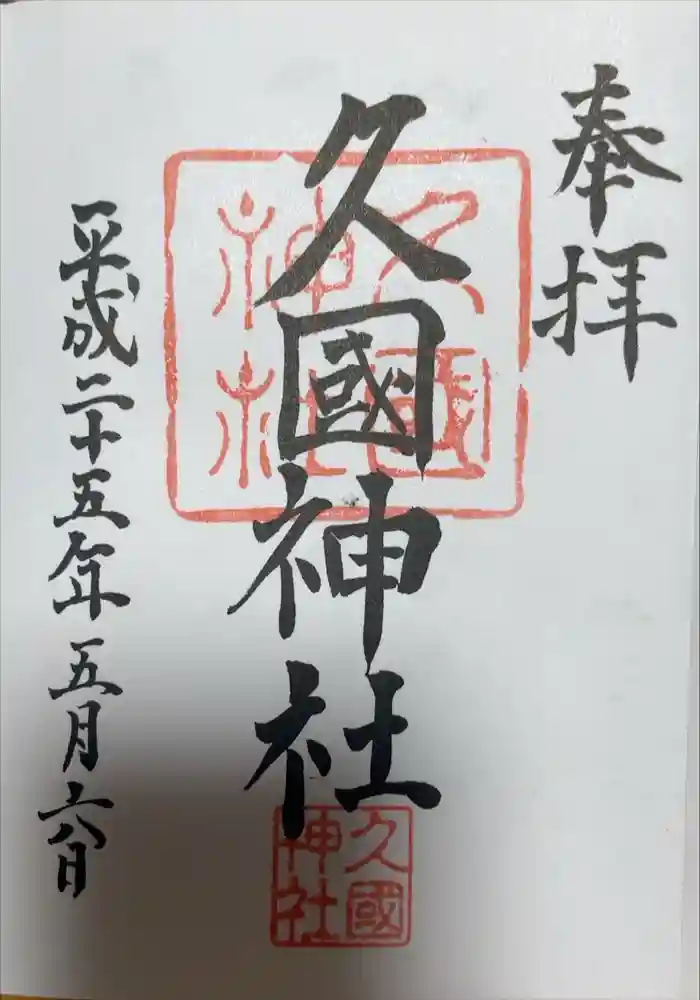 奉拝
久國神社
久國
神社
久國
神社
平成二十五年五月六日